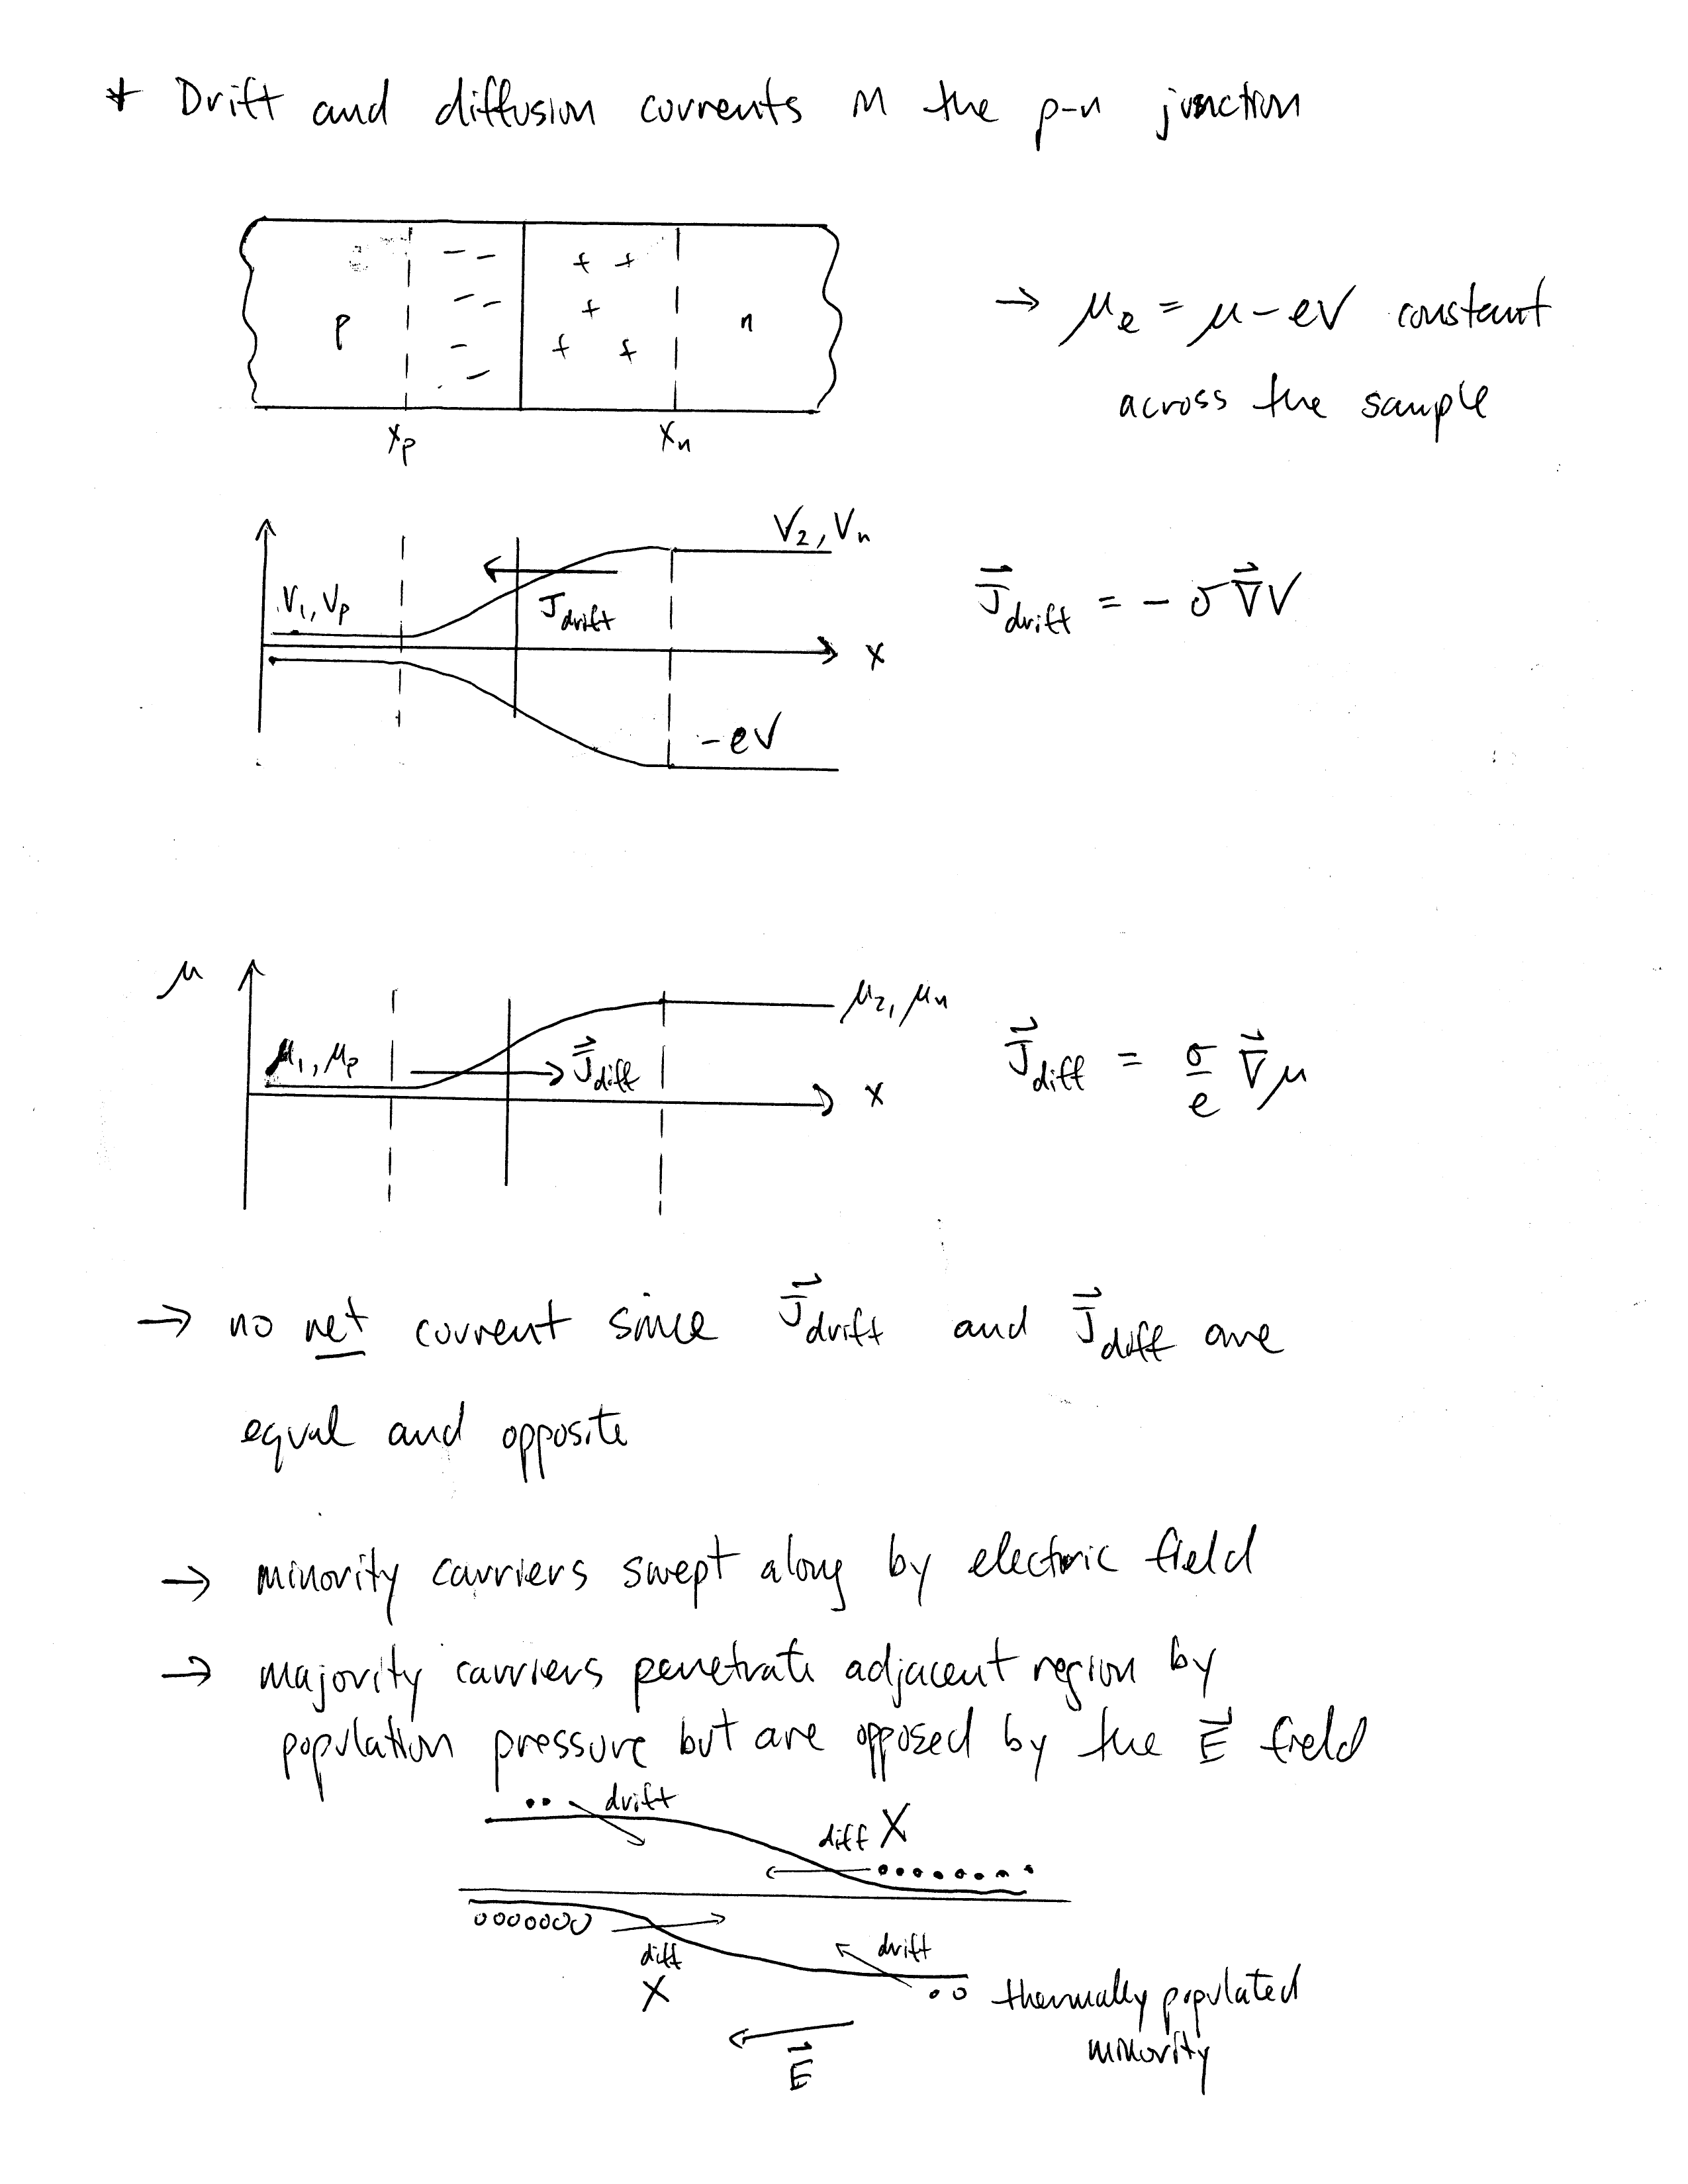 * Drift and diffusion currents in the p-n junction
p
- -
- -
-
-
+ +
+
+ +
n
→ μe = μ - eV constant
across the sample
xp
xn
V1, Vp
Jdrift
V2, Vn
J⃗drift = - σ ∇⃗V
x
-eV
μ
μ1, μp
J⃗diff
μ2, μn
J⃗diff = σ/e ∇⃗μ
x
→ no net current since J⃗drift and J⃗diff are
equal and opposite
→ minority carriers swept along by electric field
→ majority carriers penetrate adjacent region by
population pressure but are opposed by the E⃗ field
drift
diff X
diff
X
drift
thermally populated
minority
E⃗